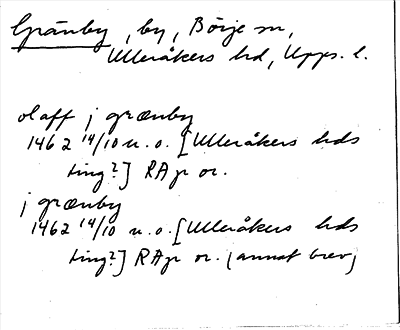 Gränby, by, Börje sn,
Ulleråkers hd, Upps. l.
olaff j grænby
1462 14/10 u. o. [Ulleråkers hds
ting?] RAp or.
j grænby
1462 14/10 u. o. [Ulleråkers hds
ting?] RAp or. (annat brev)